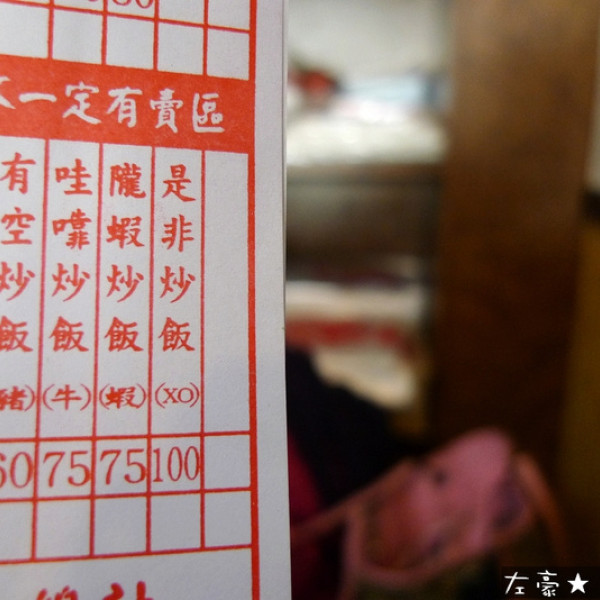 一定有賣區
是非炒飯(XO) 100
隴蝦炒飯(蝦) 75
哇嚨炒飯(牛) 75
有空炒飯(豬) 60
左豪★